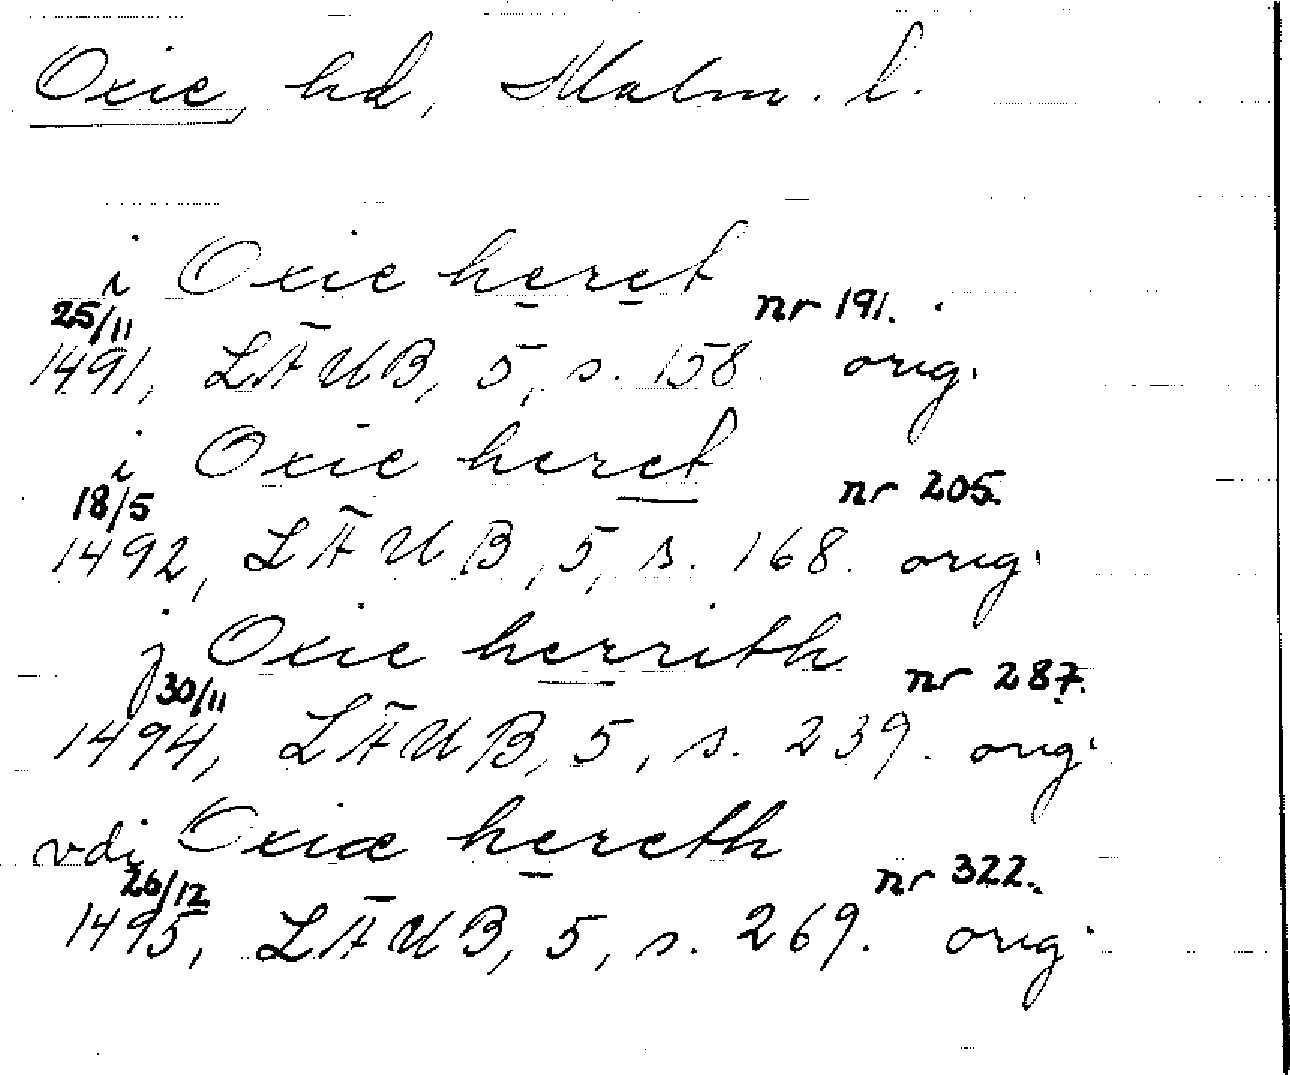 Oxie, hd, Malm. l.
i Oxie heret
25/11 nr 191.
1491, LÄUB, 5, s. 158. orig.
i Oxie heret
18/5 nr 205.
1492, LÄUB, 5, s. 168. orig.
j Oxie herrith
30/11 nr 287.
1494, LÄUB, 5, s. 239. orig.
vdi Oxiæ hereth
26/12 nr 322.
1495, LÄUB, 5, s. 269. orig.